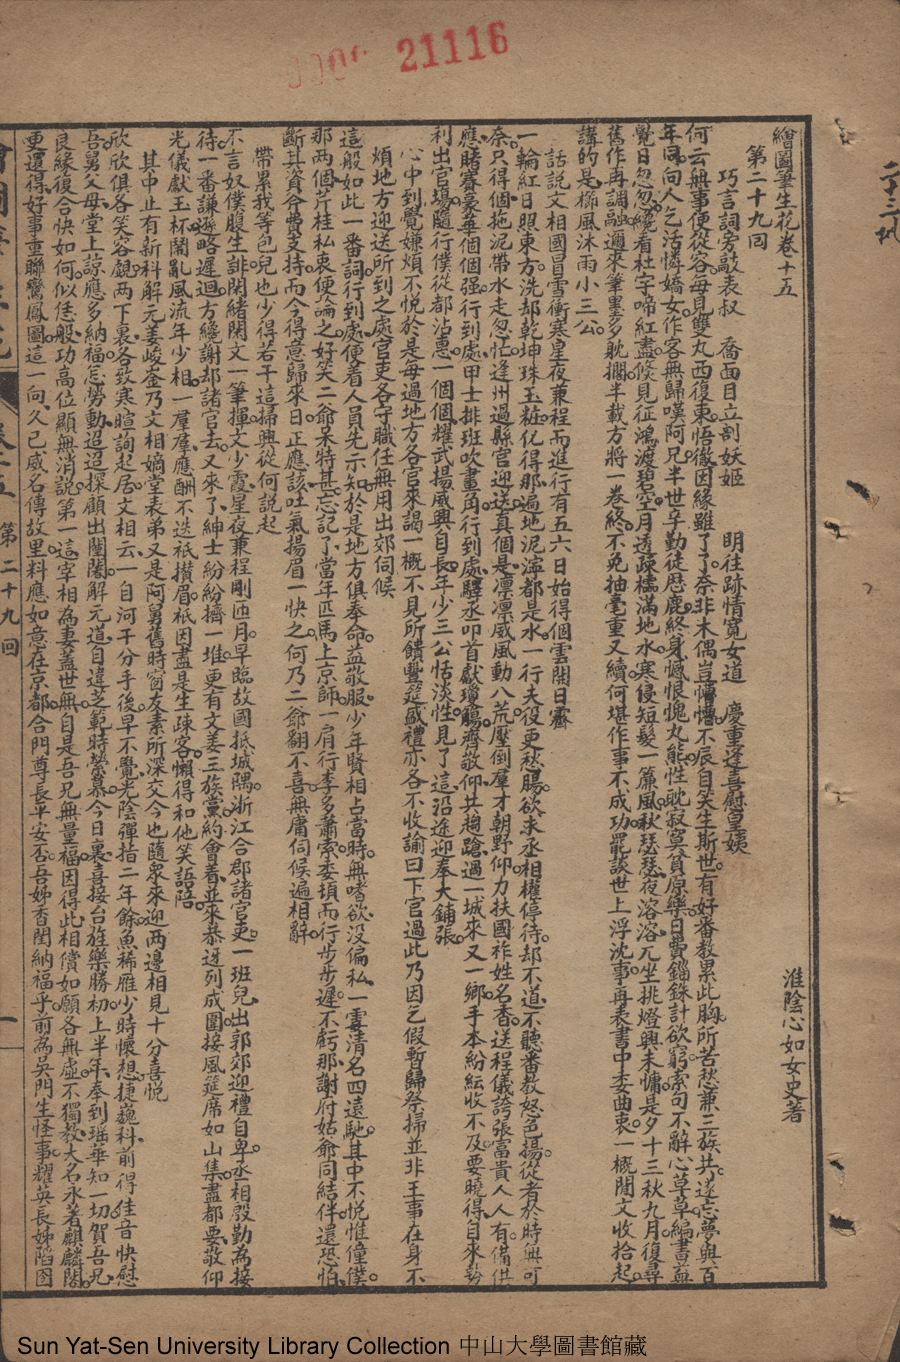 21116
繪圖筆生花卷十五
淮陰心如女史著
第二十九回
巧言詞旁敲表叔　喬面目立剖妖姬　明往跡情寬女道　慶重逢喜慰皇姨
何云無事便從容每見雙丸西復東悟徹因緣雖了了奈非木偶豈懵懵不辰自笑生斯世有好番教累此胸所苦愁兼三族共遂忘夢與百
年同向人乞活憐嬌女作客無歸嘆阿兄半世辛勤徒歷鹿終身憾恨愧丸熊性耽寂寞貧原樂日費錙銖計欲窮索句不辭心草草編書益
覺日忽忽纔看杜宇啼紅盡倏見征鴻渡碧空月透疎櫺滿地水寒侵短髮一簾風秋瑟瑟夜溶溶兀坐挑燈興未慵是夕十三秋九月復尋
舊作再調融邇來筆墨多耽擱半載方將一卷終不免抽毫重又續何堪作事不成功罷談世上浮沈事再表書中委曲衷一概閒文收拾起
講的是櫛風沐雨小三公
話說文相國冒雪衝寒星夜兼程而進行有五六日始得個雲開日霽
一輪紅日照東方洗却乾坤珠玉粧化得那遍地泥濘都是水一行夫役更愁腸欲求丞相權停待却不道不聽番教怒色揚從者於時無可
奈只得個拖泥帶水走忽忙逢州過縣官迎送真個是凛凛威風動八荒壓倒羣才朝野仰力扶國祚姓名香送程儀誇張富貴人人有備供
應賭賽豪華個個强行到處甲士排班吹畫角行到處驛丞叩首獻瓊觴齊敬仰共趨蹌過一城來又一鄉手本紛紜收不及要曉得自來勢
利出官場隨行僕從都沾惠一個個耀武揚威興自長年少三公恬淡性見了這沿途迎奉大鋪張
心中到覺嫌煩不悅於是每過地方各官來謁一概不見所饋豐筵盛禮亦各不收諭曰下官過此乃因乞假暫歸祭掃並非王事在身不
煩地方迎送所到之處官吏各守職任無用出郊伺候
這般如此一番詞行到處便着人員先示知於是地方俱奉命益敬服少年賢相占當時無嗜欲没偏私一霎清名四遠馳其中不悅惟僮僕
那两個斤桂私衷便論之好笑二爺禾特甚忘記了當年匹馬上京師一肩行李多蕭索委頓而行步步遲不虧那謝府姑爺同結伴還恐怕
斷其資斧費支持而今得意歸來日正應該吐氣揚眉一快之何乃二爺翻不喜無庸伺候遍相辭
帶累我等包兒也少得若干這掃興從何說起
不言奴僕腹生誹閒緒閒文一筆揮文少霞星夜兼程剛匝月早臨故國抵城隅浙江合郡諸官吏一班兒出郭郊迎禮自卑丞相殷勤為接
待一番謙遜略遲迴方纔謝却諸官去又來了紳士紛紛擠一堆更有文姜三族黨約會着並來恭迓列成圍接風筵席如山集盡都要敬仰
光儀獻玉杯鬧亂風流年少相一羣羣應酬不迭祇攢眉祇因盡是生疎客懶得和他笑語陪
其中止有新科解元姜峻峚乃文相嫡堂表弟又是阿舅舊時窗友素所深交今也隨衆來迎两邊相見十分喜悅
欣欣俱各笑容覷两下裏各致寒暄詢起居文相云一自河干分手後早不覺光陰彈指二年餘魚稀雁少時懷想捷巍科前得佳音快慰
吾舅父母堂上諒應多納福怎勞動迢迢探顧出闉闍解元道自違芝範時縈慕今日裏喜接台旌樂勝初上半年奉到瑶華知一切賀吾兄
良緣復合快如何似恁般功高位顯無消說第一這宰相為妻蓋世無自是吾兄無量福因得此相償如願各無虛不獨教大名永著麒麟閣
更還得好事重聯鸞鳳圖這一向久已威名傳故里料應如意在京都合門尊長平安否吾姊香閨納福乎前為吳門生怪事耀英長姊陷囹
第二十九回
一
Sun Yat-Sen University Library Collection 中山大學圖書館藏